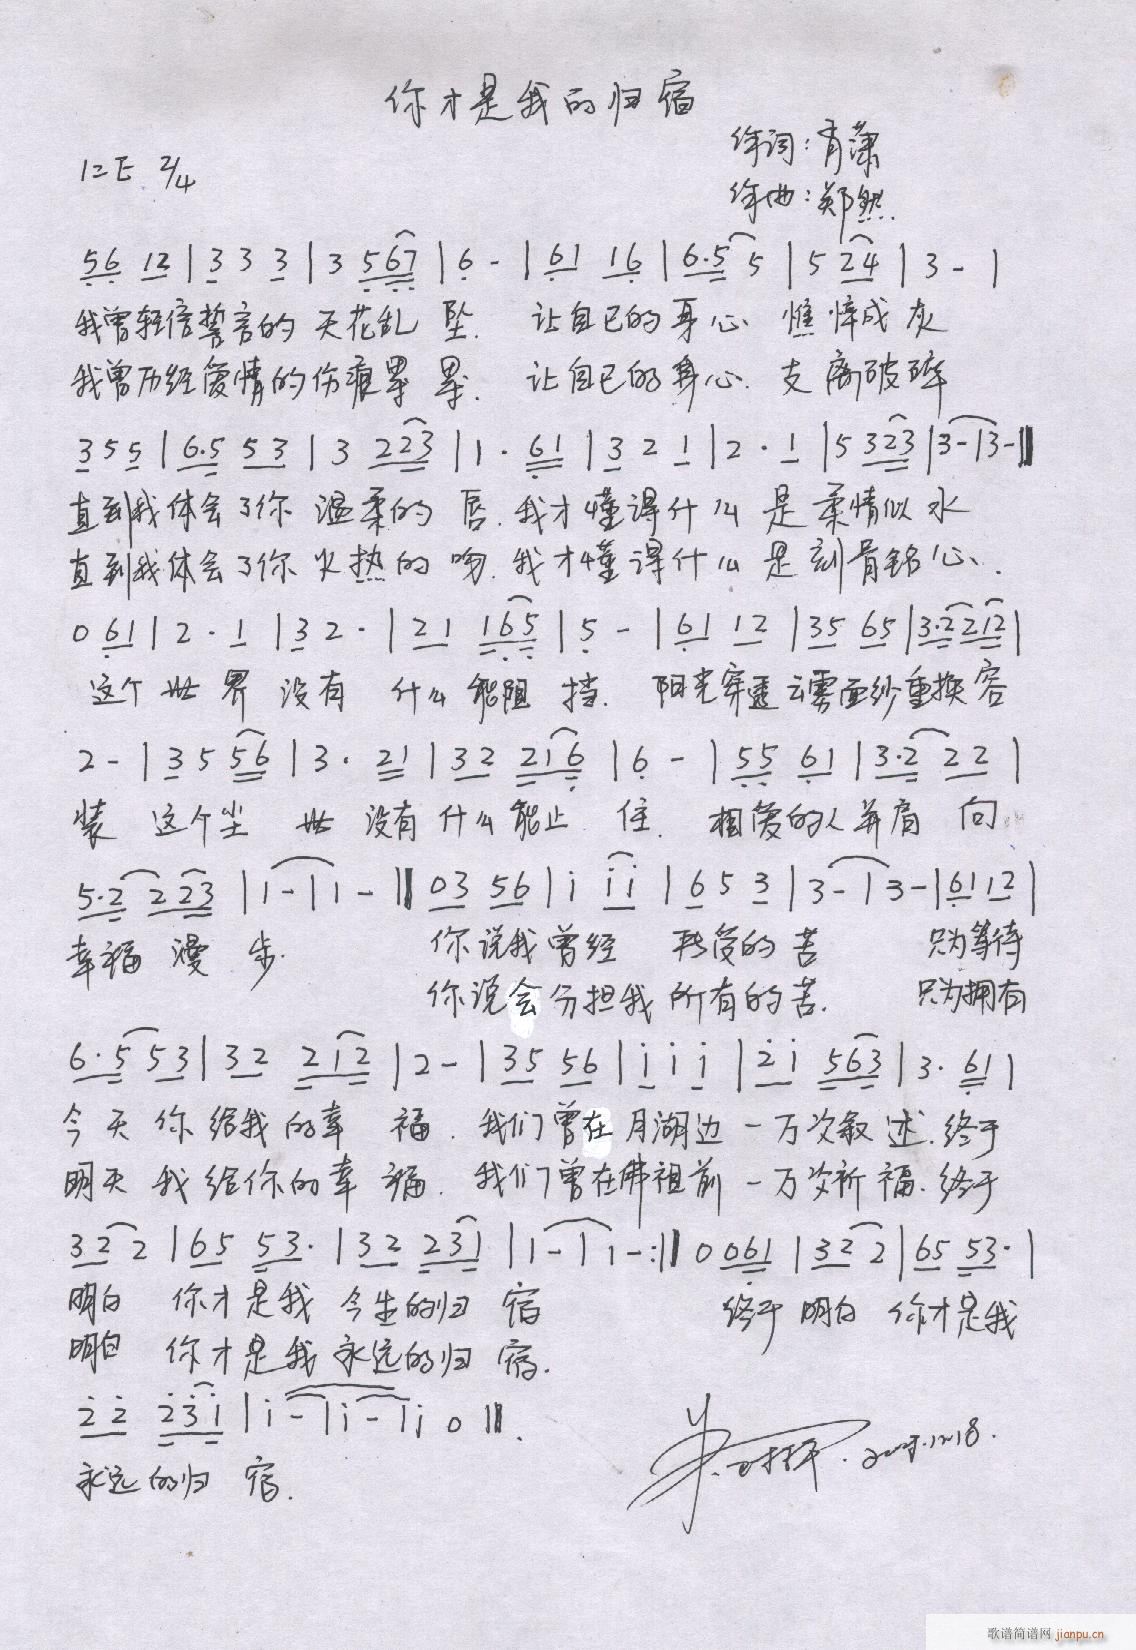 你才是我的归宿
作词:肖潇
1=E 2/4
作曲:郑然
56 12 | 3 3 3 | 3 567 | 6 - | 61 16 | 6.5 5 | 5 24 | 3 - |
我曾轻信誓言的 天花乱 坠. 让自己的身心 憔悴成灰
我曾历经爱情的伤痕累 累. 让自己的身心. 支离破碎
3 5 5 | 6.5 53 | 3 223 | 1 . 61 | 3 2 1 | 2 . 1 | 5 323 | 3 - | 3 - ‖
直到我体会了你 温柔的 唇. 我才懂得什么 是柔情似水
直到我体会了你火热的 吻. 我才懂得什么 是刻骨铭心.
0 61 | 2 . 1 | 3 2 . | 21 165 | 5 - | 61 12 | 35 65 | 3.2 212 |
这个 世 界 没有 什么能阻 挡. 阳光穿透云雾面纱重换容
2 - | 3 5 56 | 3 . 21 | 32 216 | 6 - | 55 61 | 3.2 22 |
装 这个尘 世 没有什么能止 住. 相爱的人并肩 向
5.2 223 | 1 - | 1 - ‖ 03 56 | i ii | 6 5 3 | 3 - | 3 - | 61 12 |
幸福 漫 步. 你说我曾经 所受的苦 只为等待
你说会分担我所有的苦. 只为拥有
6.5 53 | 32 212 | 2 - | 35 56 | i i i | 2i 563 | 3. 61 |
今天 你给我的幸 福. 我们曾在月湖边 一万次叙 述. 终于
明天 我给你的幸 福. 我们曾在佛祖前 一万次祈福. 终于
32 2 | 65 53. | 32 231 | 1 - | 1 - :‖ 0 061 | 32 2 | 65 53. |
明白 你才是我 今生的归 宿 终于 明白 你才是我
明白 你才是我永远的归 宿.
22 23i | i - | i - | i 0 ‖.
永远的归 宿.
歌谱简谱网 jianpu.cn